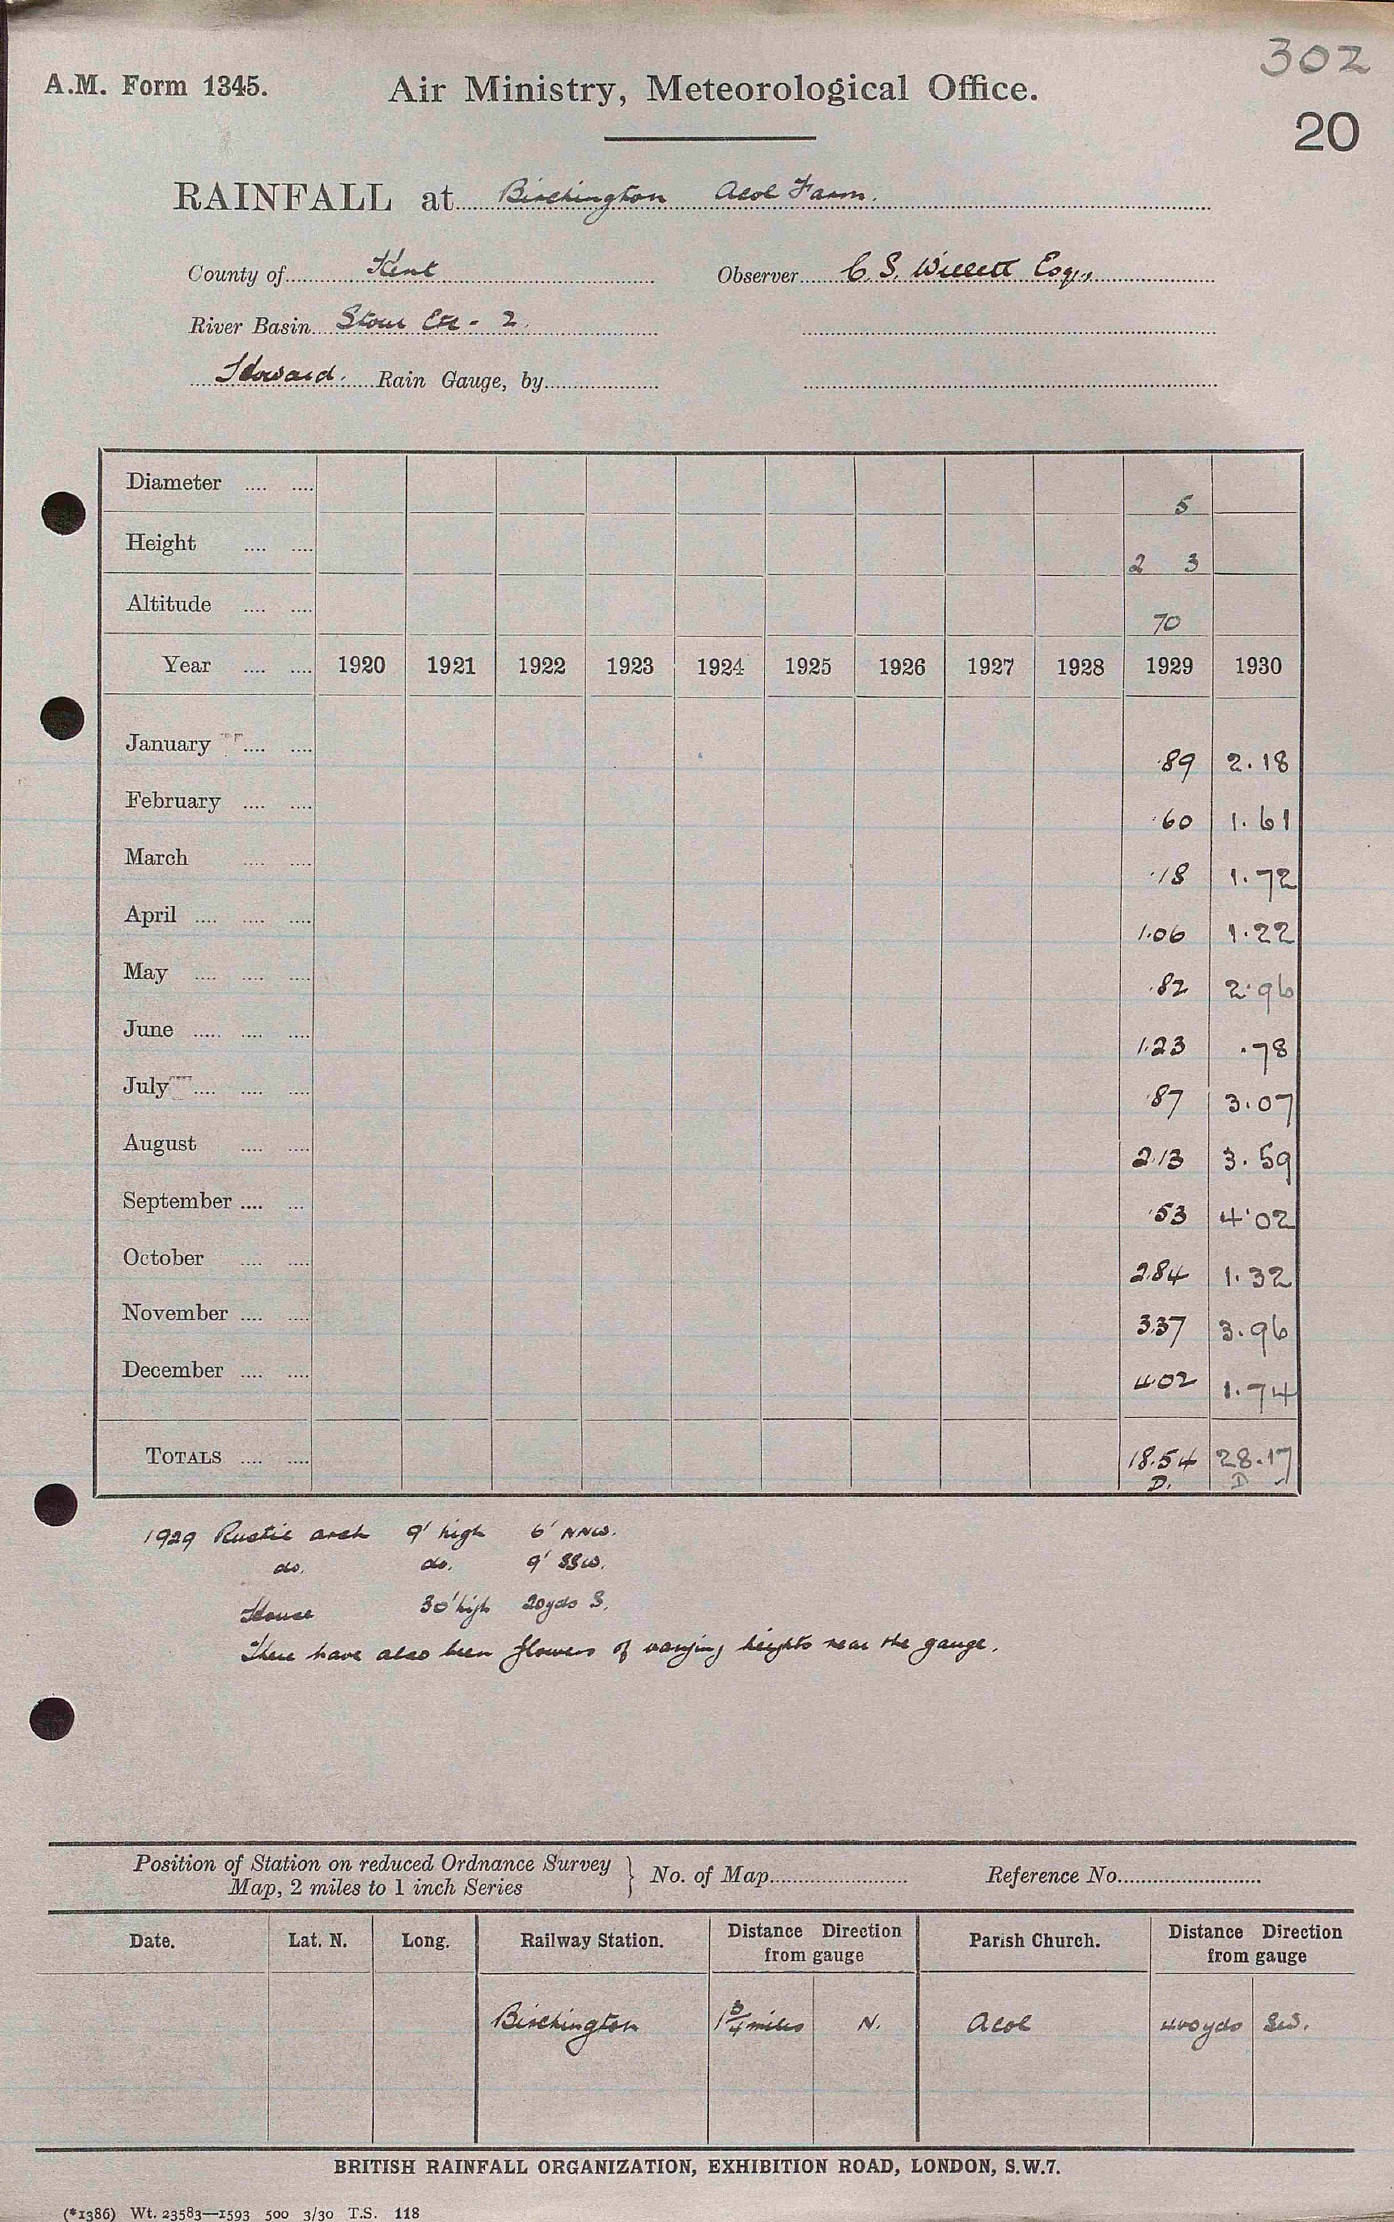 302
A.M. Form 1345.
Air Ministry, Meteorological Office.
20
RAINFALL at Birchington Acol Farm.
County of Kent Observer C. S. Willett Esq.,
River Basin Stour Etc - 2.
Howard. Rain Gauge, by
Diameter 5
Height 2 3
Altitude 70
Year 1920 1921 1922 1923 1924 1925 1926 1927 1928 1929 1930
January .89 2.18
February .60 1.61
March .18 1.72
April 1.06 1.22
May .82 2.96
June 1.23 .78
July .87 3.07
August 2.13 3.59
September .53 4.02
October 2.84 1.32
November 3.37 3.96
December 4.02 1.74
TOTALS 18.54 28.17
D. D
1929 Rustic arch 9' high 6' NNW.
do. do. 9' SSW.
House 30' high 20yds S.
There have also been flowers of varying heights near the gauge.
Position of Station on reduced Ordnance Survey
Map, 2 miles to 1 inch Series } No. of Map Reference No.
Date. Lat. N. Long. Railway Station. Distance Direction from gauge Parish Church. Distance Direction from gauge
Birchington 1 3/4 miles N. Acol 400yds SW.
BRITISH RAINFALL ORGANIZATION, EXHIBITION ROAD, LONDON, S.W.7.
(*1386) Wt. 23583—1593 500 3/30 T.S. 118